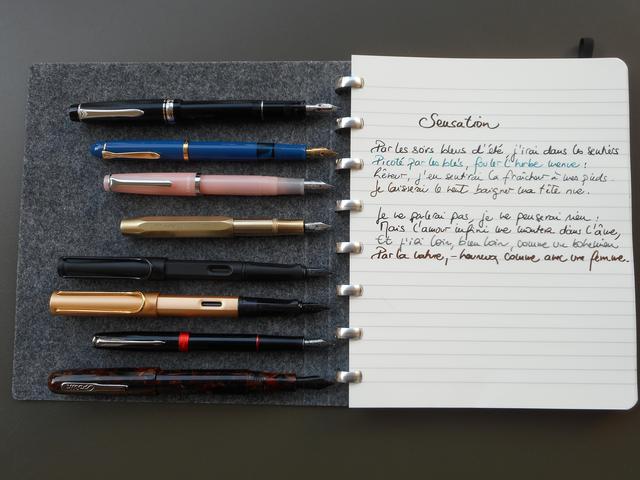 Sensation
Par les soirs bleus d'été, j'irai dans les sentiers
Picoté par les blés, fouler l'herbe menue :
Rêveur, j'en sentirai la fraîcheur à mes pieds.
Je laisserai le vent baigner ma tête nue.
Je ne parlerai pas, je ne penserai rien :
Mais l'amour infini me montera dans l'âme,
Et j'irai loin, bien loin, comme un bohémien
Par la nature, - heureux comme avec une femme.